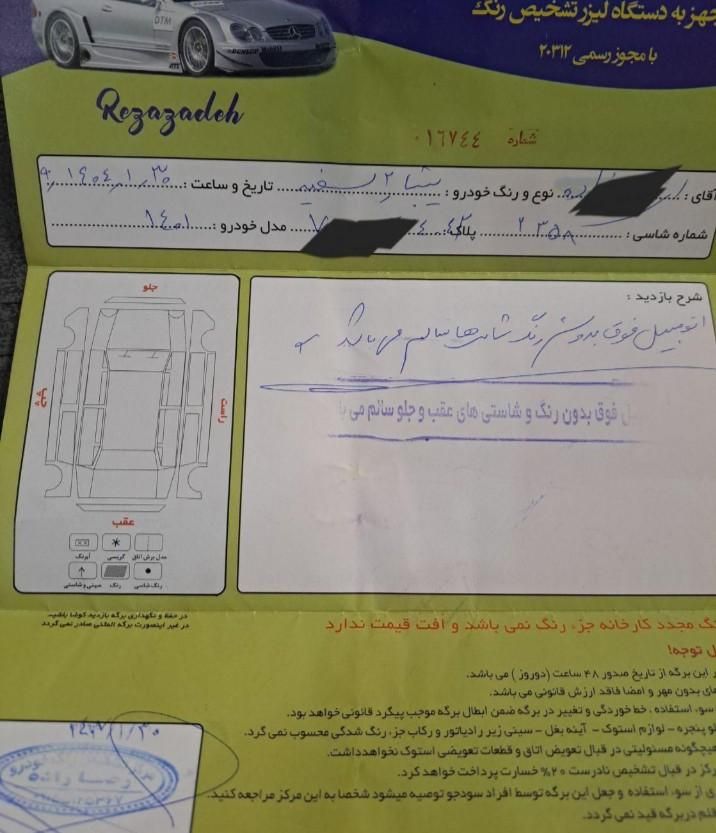 جهز به دستگاه لیزر تشخیص رنگ
با مجوز رسمی ۲۰۳۱۲
DTM
DUNLOP
Rezazadeh
شماره ۰۱۶۷۴۴
آقای : نوع و رنگ خودرو : تیبا ۲ سفید تاریخ و ساعت : ۱۴۰۴/۱/۳۰
شماره شاسی : پلاک : مدل خودرو : ۱۴۰۱
جلو
چپ
راست
عقب
مدل برش اتاق
گریسی
آبرنگ
رنگ شاسی
رنگ
سینی و شاسی
شرح بازدید :
اتومبیل فوق بدون رنگ شاسی ها سالم می باشد
فوق بدون رنگ و شاسی های عقب و جلو سالم می با
در حفظ و نگهداری برگه بازدید کوشا باشید
در غیر اینصورت برگه المثنی صادر نمی گردد
نگ مجدد کارخانه جزء رنگ نمی باشد و افت قیمت ندارد
ل توجه!
ر این برگه از تاریخ صدور ۴۸ ساعت (دوروز) می باشد.
های بدون مهر و امضا فاقد ارزش قانونی می باشد.
سوء استفاده ، خط خوردگی و تغییر در برگه ضمن ابطال برگه موجب پیگرد قانونی خواهد بود.
لو پنجره - لوازم استوک - آینه بغل - سینی زیر رادیاتور و رکاب جزء رنگ شدگی محسوب نمی گردد.
هیچگونه مسئولیتی در قبال تعویض اتاق و قطعات تعویضی استوک نخواهد داشت.
رکز در قبال تشخیص نادرست ۲۰% خسارت پرداخت خواهد کرد.
ی از سوء استفاده و جعل این برگه توسط افراد سودجو توصیه میشود شخصا به این مرکز مراجعه کنید.
در برگه قید نمی گردد.
رضا زاده